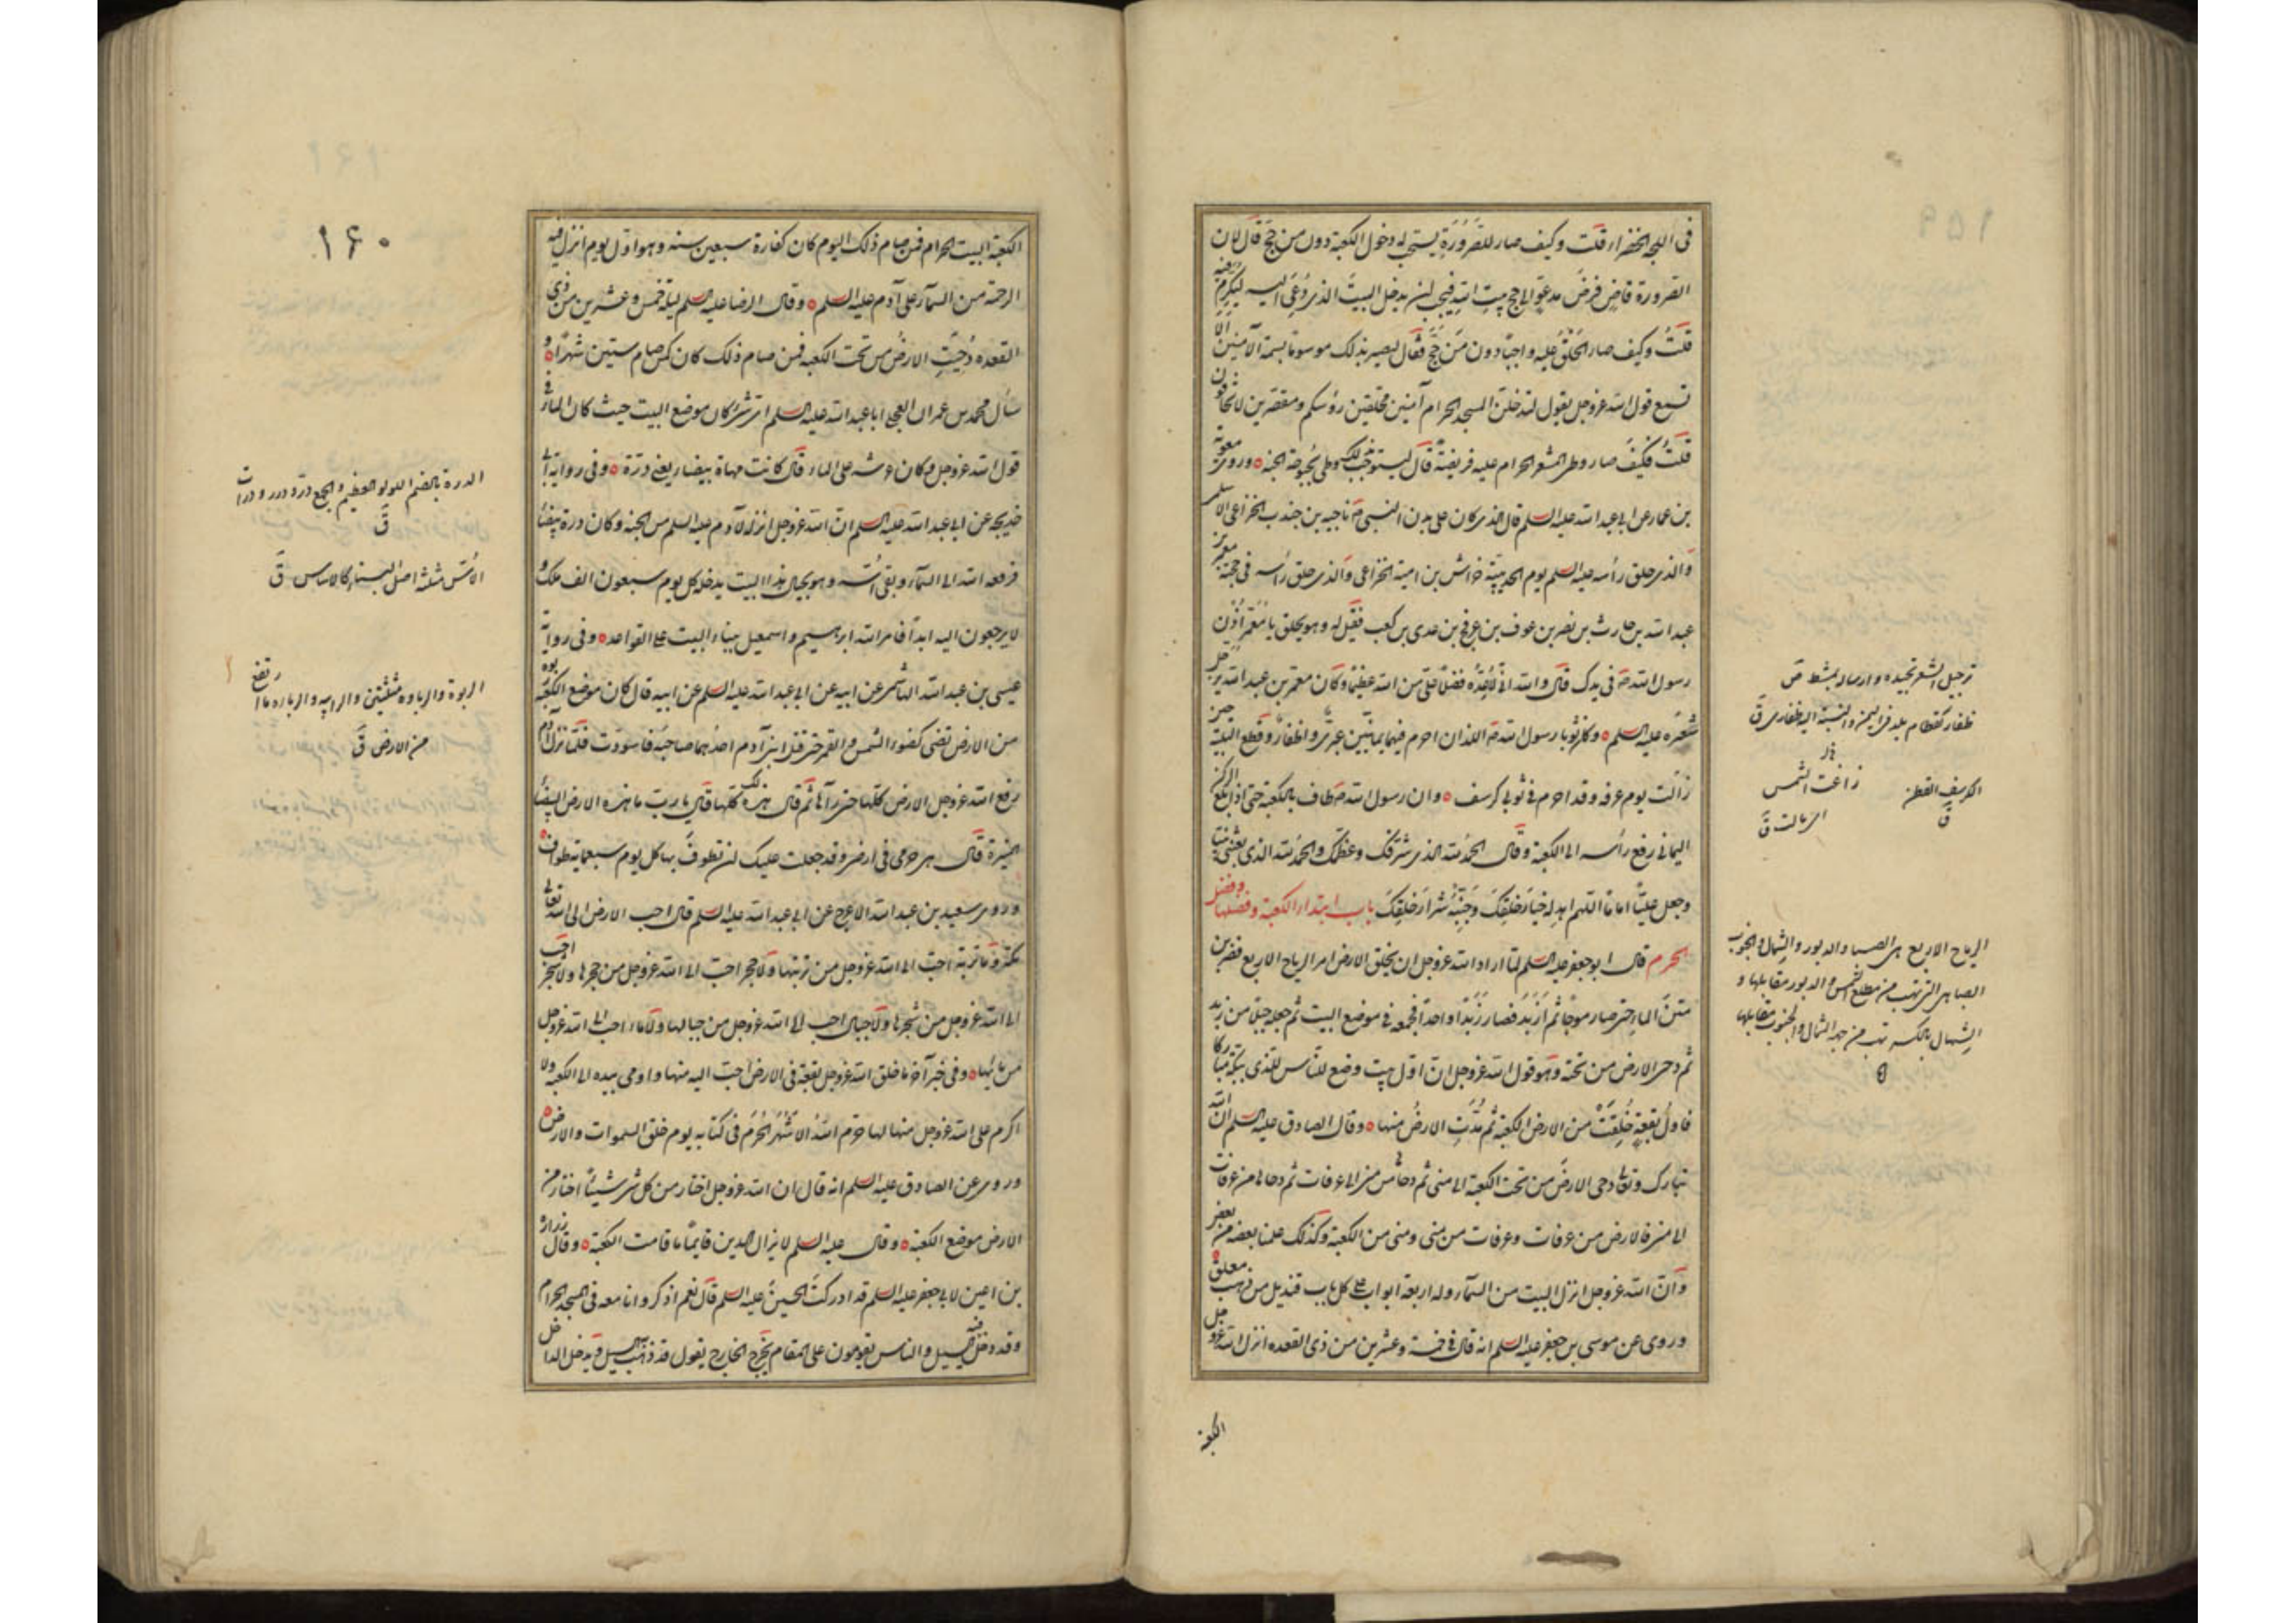 في اللجة الخضراء قلت وكيف صار للصَّرُورَةِ يستحب له دخول الكعبة دون من حَجَّ قال لان
الصرورة قاضي فرض مدعوّ الى حج بيت الله فيجب ان يدخل البيت الذي دُعِيَ اليه ليُكرَمَ فيه
قلتُ وكيف صار الحَلْقُ عليه واجبًا دون مَن حَجَّ فقال ليصير بذلك موسومًا بسمة الآمنين الا
تسمع قول الله عز وجل يقول لتدخلن المسجد الحرام آمنين محلقين رؤسكم ومقصرين لا تخافون
قلتُ فكيف صار وطى المشعر الحرام عليه فريضة قال ليستوجب بذلك وطى بحبوحة الجنة وروى معوية
بن عمار عن ابي عبد الله عليه السلم قال الذي كان على بدن النبي ص ناجية بن جندب الخزاعي الاسلمي
والذي حلق رأسه عليه السلم يوم الحديبية خراش بن امية الخزاعي والذي حلق رأسه في حجته معمر بن
عبد الله بن حارث بن نصر بن عوف بن عويج بن عدي بن كعب فقيل له وهو يحلق يا مَعْمَرُ أُذُن
رسول الله ص في يدك قال والله اني لاَعُدُّه فضلا عليّ من الله عظيمًا وكان معمر بن عبد الله يرجل
شَعْرَه عليه السلم وكان ثوبا رسول الله ص اللذان احرم فيهما يمانيين عبري واظفار وقطع التلبية حين
زالت يوم عرفة وقد احرم في ثوبي كرسف وان رسول الله ص طاف بالكعبة حتى اذا بلغ الركن
اليماني رفع رأسه الى الكعبة وقال الحمد لله الذي شرفك وعظمك والحمد لله الذي بعثني نبيا
وجعل عليًّا امامًا اللهم اهد له خيارَ خلقك وجَنِّبْهُ شرارَ خلقِكَ باب ابتداء الكعبة وفضلها وفضل
الحرم قال ابو جعفر عليه السلم لما اراد الله عز وجل ان يخلق الارض امر الرياح الاربع فضربن
متنَ الماء حتى صار موجًا ثم أزبَدَ فصار زَبَدًا واحدًا فجمعه في موضع البيت ثم جعله جبلا من زبد
ثم دحى الارض من تحته وهو قول الله عز وجل ان اول بيت وضع للناس للذي ببكة مباركا
فاول بقعة خُلِقَتْ من الارض الكعبة ثم مُدَّتِ الارضُ منها وقال الصادق عليه السلم ان الله
تبارك وتعالى دحى الارض من تحت الكعبة الى منى ثم دحاها من منى الى عرفات ثم دحاها من عرفات
الى منى فالارض من عرفات وعرفات من منى ومنى من الكعبة وكذلك علمنا بعضه من بعض
وانّ الله عز وجل انزل البيت من السماء وله اربعة ابواب على كل باب قنديل من ذهب معلق
وروي عن موسى بن جعفر عليه السلم انه قال في خمسة وعشرين من ذي القعدة انزل الله عز وجل
الكعبة
ترجيل الشعر تجعيده وارساله بمشط ص
ظفار كقطام بلد في اليمن والنسبة اليه ظفاري ق
الكرسف القطن ق
زاغت الشمس
اي مالت ق
الرياح الاربع هي الصبا والدبور والشمال والجنوب
الصبا هي التي تهب من مطلع الشمس والدبور مقابلها و
الشمال بالكسر تهب من جهة الشمال والجنوب مقابلها
١٦٠
الكعبة البيت الحرام فمن صام ذلك اليوم كان كفارة سبعين سنة وهو اول يوم انزل فيه
الرحمة من السماء على آدم عليه السلم وقال الرضا عليه السلم ليلة خمس وعشرين من ذي
القعدة دُحِيَتِ الارضُ من تحت الكعبة فمن صام ذلك كان كمن صام ستين شهرًا و
سأل محمد بن عمران العجلي ابا عبد الله عليه السلم اي شيء كان موضع البيت حيث كان الماء في
قول الله عز وجل وكان عرشه على الماء قال كانت مهاة بيضاء يعني درّة وفي رواية ابي
خديجة عن ابي عبد الله عليه السلم ان الله عز وجل انزله لآدم عليه السلم من الجنة وكان درة بيضاء
فرفعه الله الى السماء وبقي أُسُّه وهو بحيال هذا البيت يدخله كل يوم سبعون الف ملك
لا يرجعون اليه ابدًا فامر الله ابرهيم واسمعيل ببناء البيت على القواعد وفي رواية
عيسى بن عبد الله الهاشمي عن ابيه عن ابي عبد الله عليه السلم عن ابيه قال كان موضع الكعبة ربوة
من الارض بيضاء تضيء كضوء الشمس والقمر حتى قتل ابنا آدم احدهما صاحبَه فاسودّت فلما نزل آدم
رفع الله عز وجل الارض كلها حتى رآها ثم قال هذه لك كلها قال يا رب ما هذه الارض البيضاء
المنيرة قال هي حرمي في ارضي وقد جعلت عليك ان تطوف بها كل يوم سبعماية طواف
وروى سعيد بن عبد الله الاعرج عن ابي عبد الله عليه السلم قال احب الارض الى الله تعالى
مكة وما تربة احبّ الى الله عز وجل من تربتها ولا حجر احبّ الى الله عز وجل من حجرها ولا شجر احبّ
الى الله عز وجل من شجرها ولا جبال احب الى الله عز وجل من جبالها ولا ماء احب الى الله عز وجل
من مائها وفي خبر آخر ما خلق الله عز وجل بقعة في الارض احبّ اليه منها واومى بيده الى الكعبة ولا
اكرم على الله عز وجل منها لها حرم اللهُ الاشهُرَ الحُرُمَ في كتابه يوم خلق السموات والارض
وروي عن الصادق عليه السلم انه قال ان الله عز وجل اختار من كل شيء شيئًا اختار من
الارض موضع الكعبة وقال عليه السلم لا يزال الدين قايمًا ما قامت الكعبة وقال زرارة
بن اعين لابي جعفر عليه السلم قد ادركتَ الحسينَ عليه السلم قال نعم اذكر وانا معه في المسجد الحرام
وقد دخل فيه السيل والناس يقومون على المقام يخرج الخارج يقول قد ذهب به السيل ويدخل الداخل
الدرة بالضم اللؤلؤ العظيم والجمع در ودرر ودرات
ق
الاُسّ مثلثة اصل البناء كالاساس ق
الربوة والرباوة مثلثتين والرابية والرباة ما ارتفع
من الارض ق